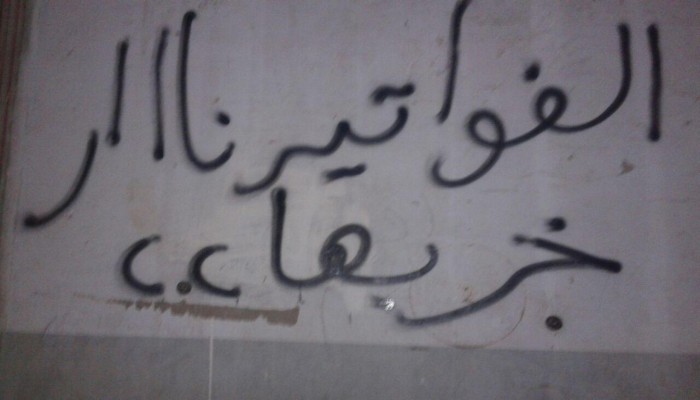 الفواتير نااار
خربها c.c